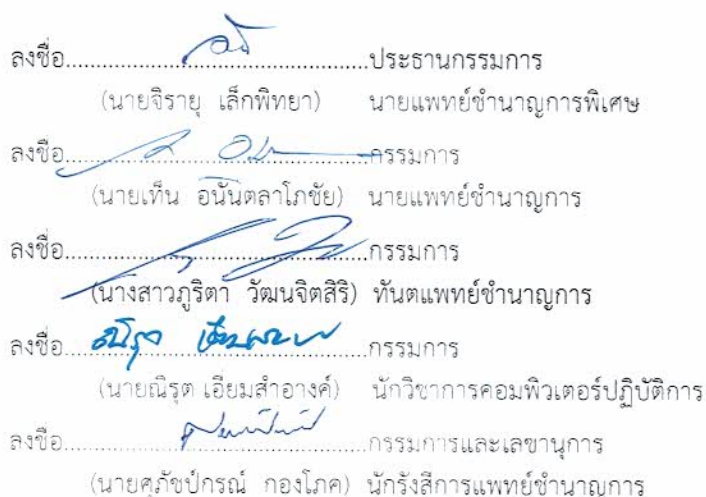 ลงชื่อ................................................ประธานกรรมการ
(นายจิรายุ เล็กพิทยา) นายแพทย์ชำนาญการพิเศษ
ลงชื่อ................................................กรรมการ
(นายเท็น อนันตลาโภชัย) นายแพทย์ชำนาญการ
ลงชื่อ................................................กรรมการ
(นางสาวภูริตา วัฒนจิตสิริ) ทันตแพทย์ชำนาญการ
ลงชื่อ................................................กรรมการ
(นายณิรุต เอียมสำอางค์) นักวิชาการคอมพิวเตอร์ปฏิบัติการ
ลงชื่อ................................................กรรมการและเลขานุการ
(นายศุภัชป์กรณ์ กองโภค) นักรังสีการแพทย์ชำนาญการ